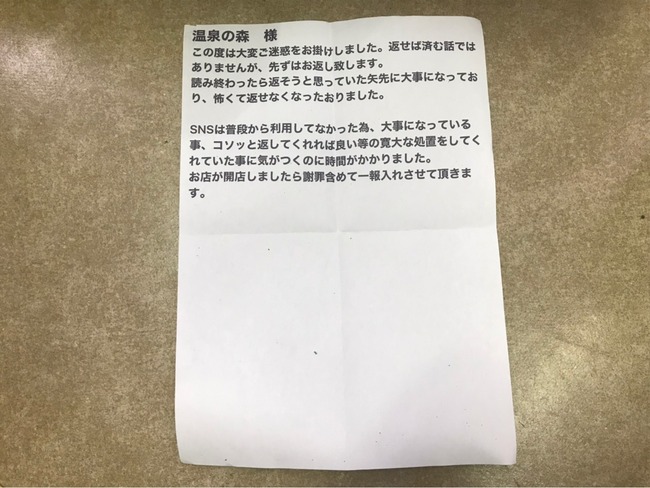 温泉の森　様
この度は大変ご迷惑をお掛けしました。返せば済む話では
ありませんが、先ずはお返し致します。
読み終わったら返そうと思っていた矢先に大事になってお
り、怖くて返せなくなったおりました。
SNSは普段から利用してなかった為、大事になっている
事、コソッと返してくれれば良い等の寛大な処置をしてく
れていた事に気がつくのに時間がかかりました。
お店が開店しましたら謝罪含めて一報入れさせて頂きま
す。